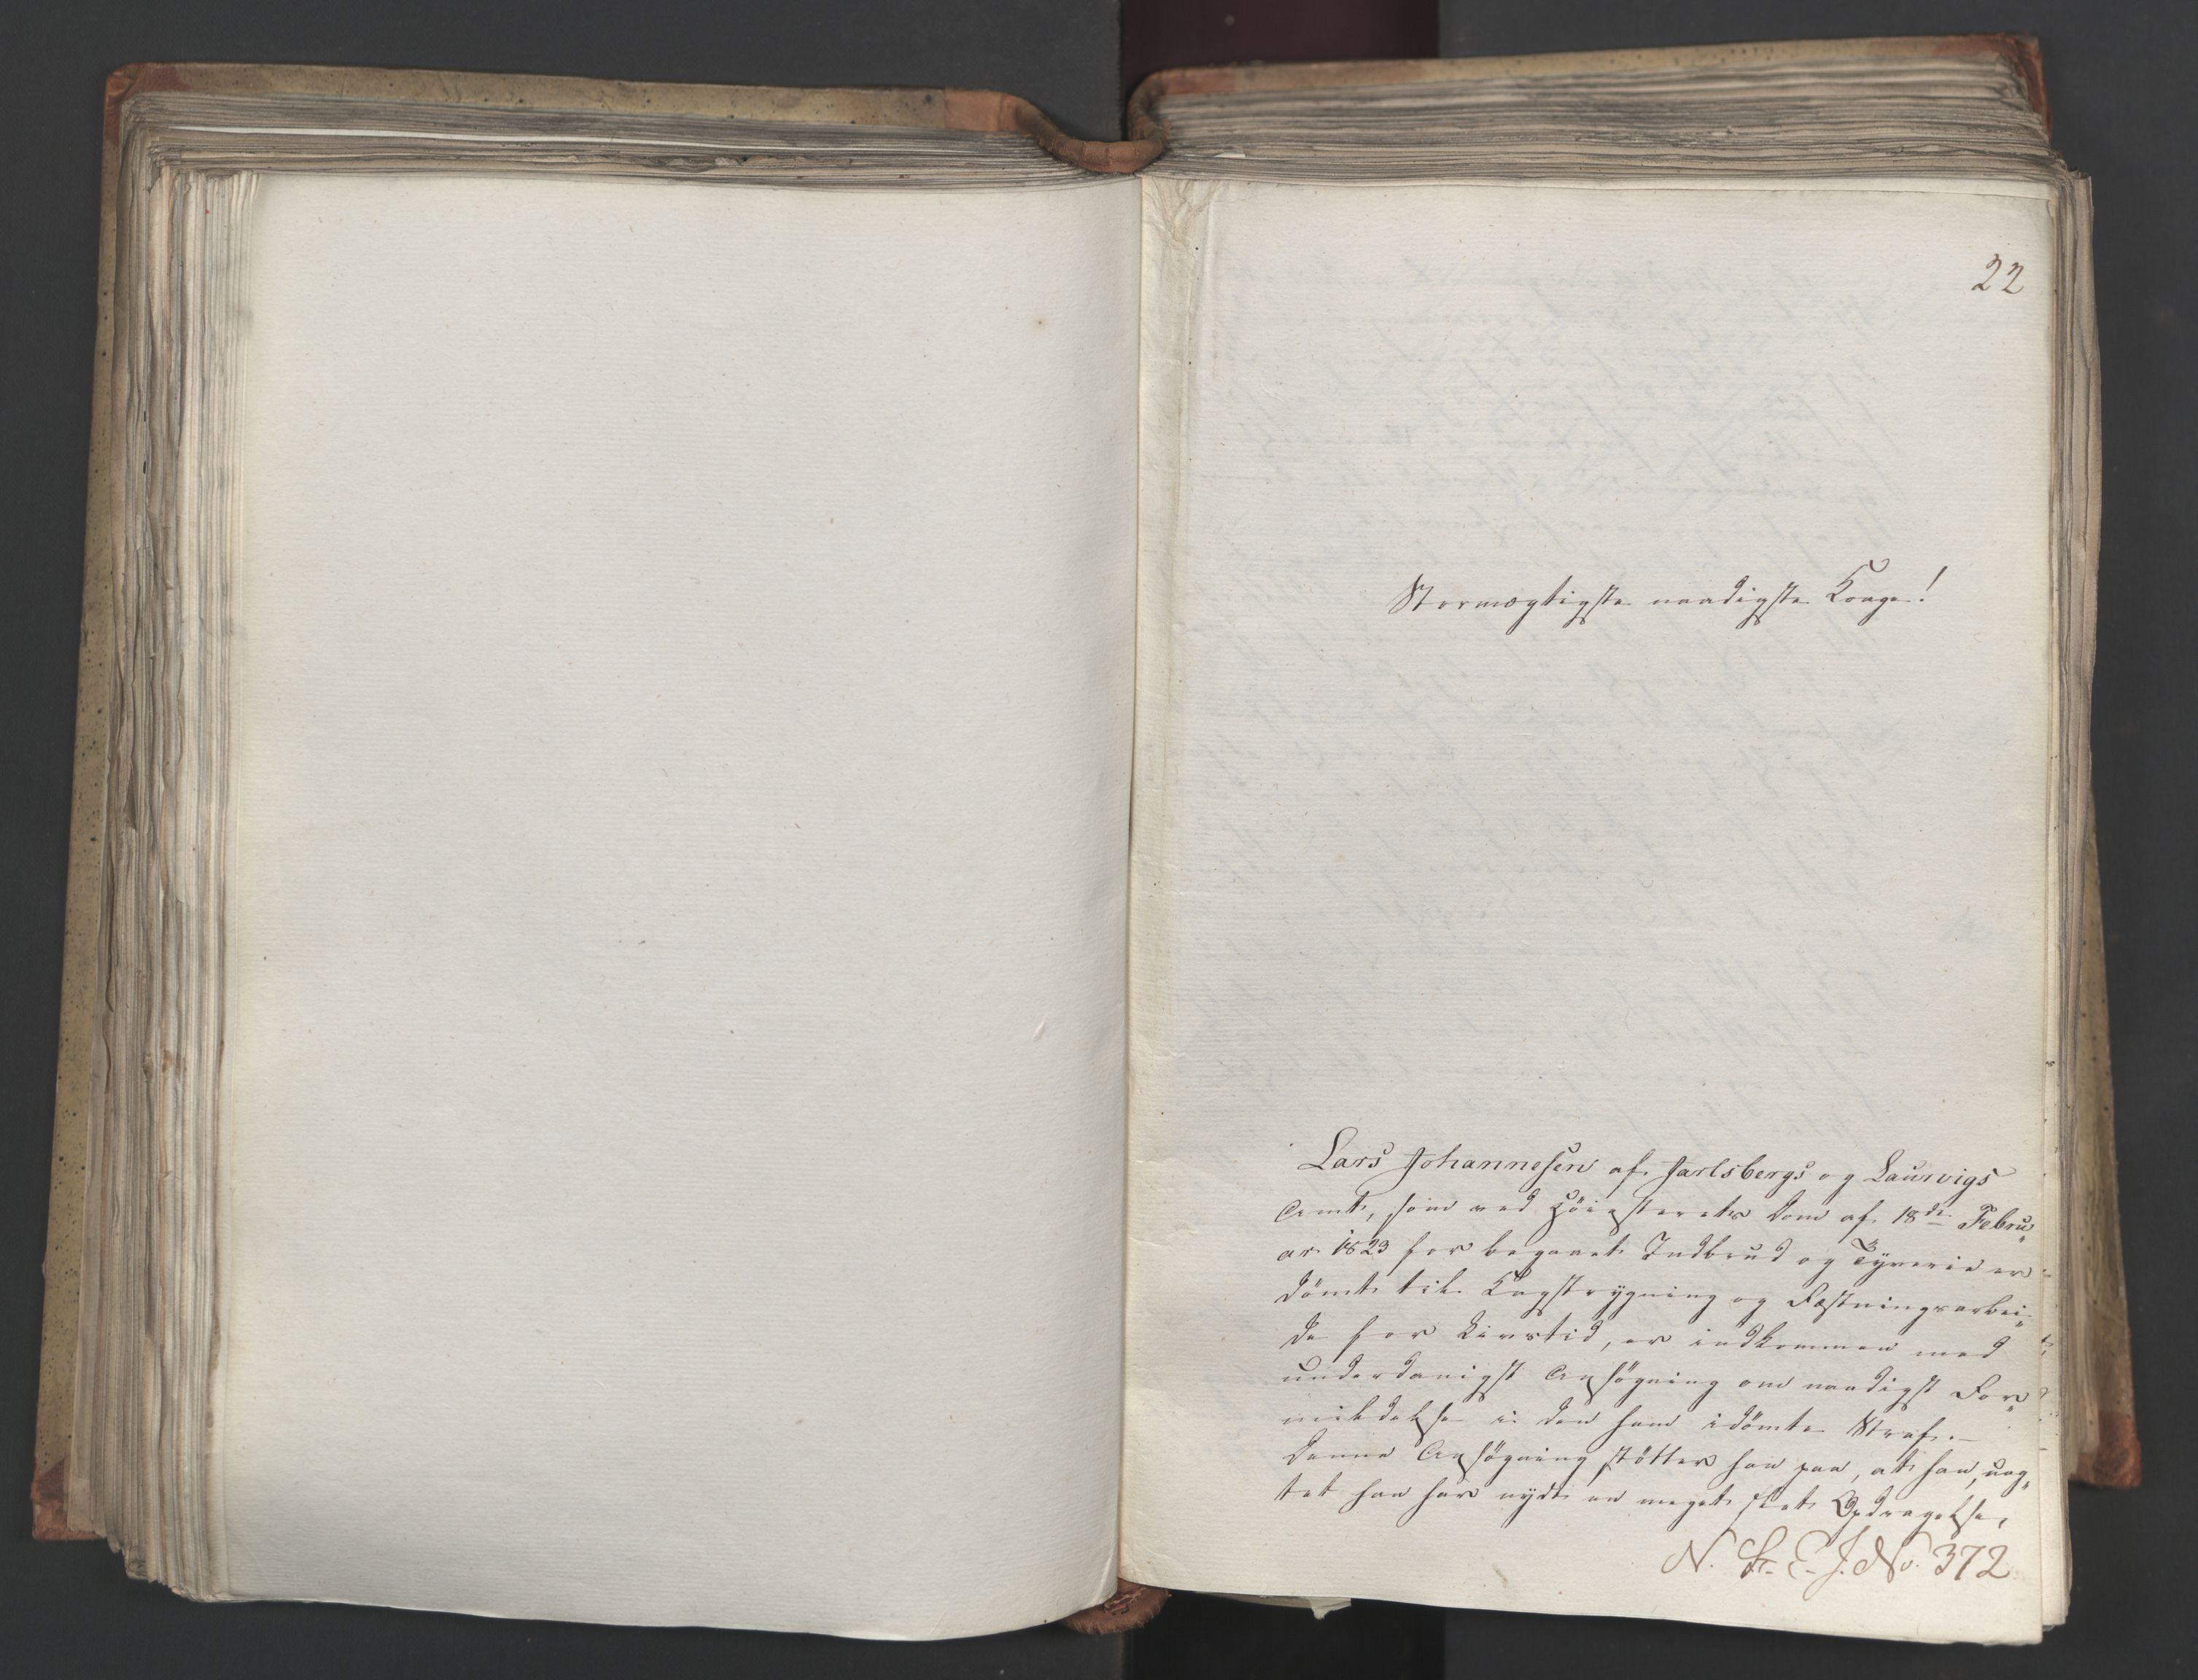 22
Stormægtigste naadigste Konge!
Lars Johannesen af Jarlsbergs og Laurvigs
Amt, som ved Höiesterets Dom af 18de Febru„
ar 1823 for begaaet Indbrud og Tyverie er
dömt til Kagstrygning og Fæstningsarbei„
de for Livstid, er indkommen med
underdanigst Ansögning om naadigst For„
mildelse i den ham idömte Straf.—
Denne Ansögning stötter han paa, at han, uag„
tet han har nydt en meget slet Opdragelse,
N. St. E. J. No. 372